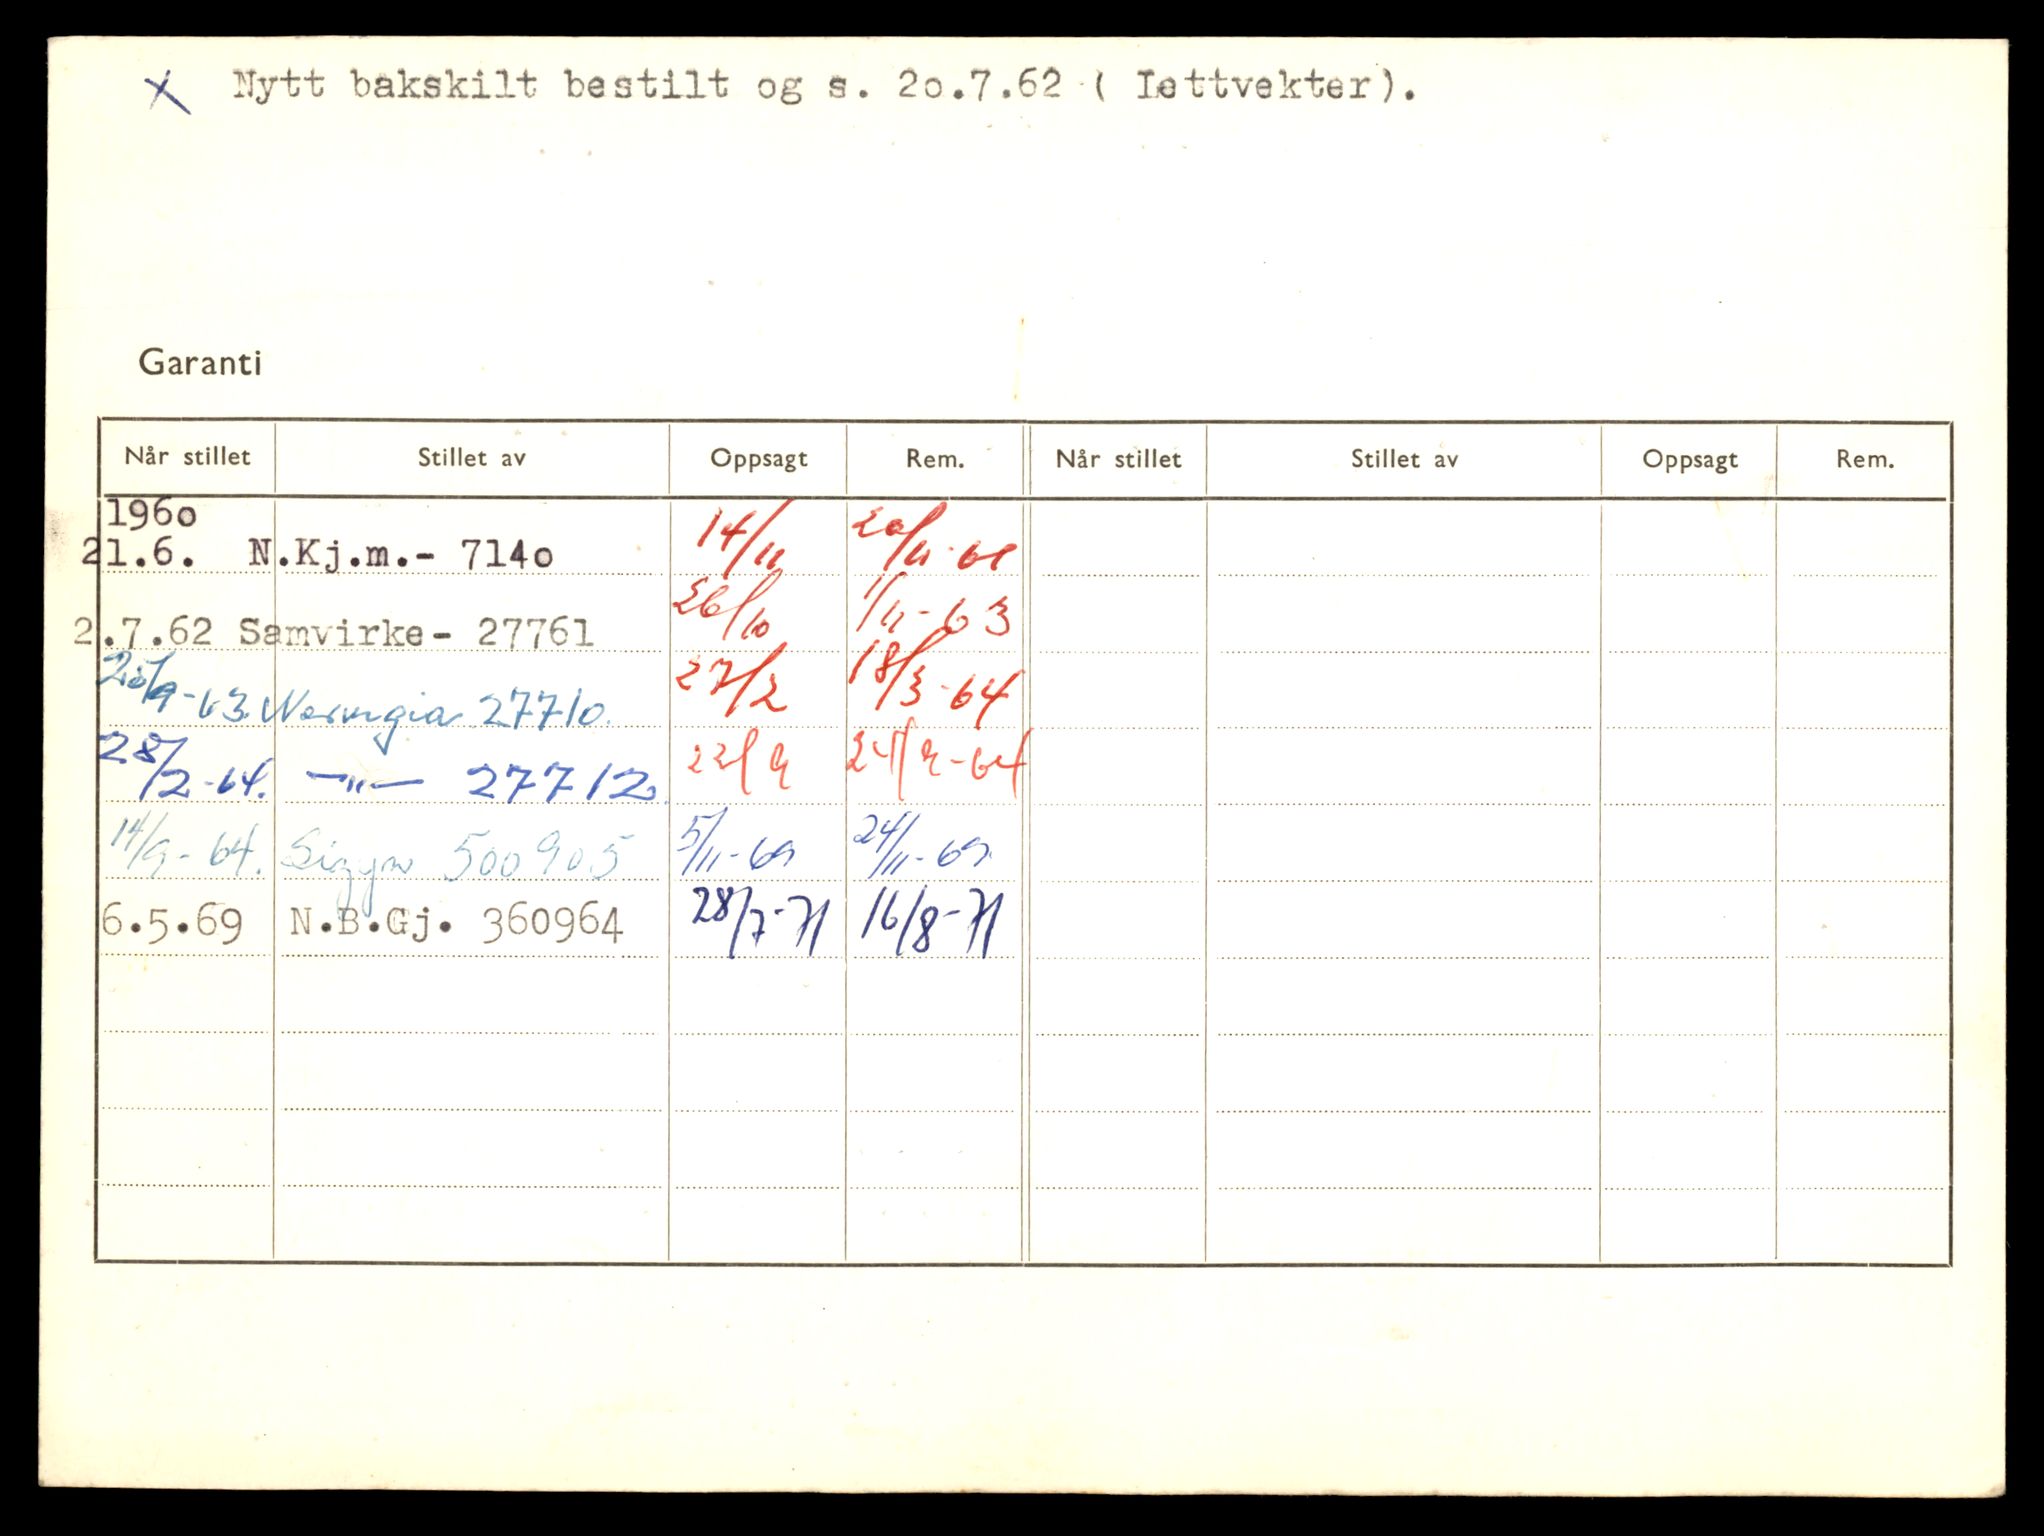 x Nytt bakskilt bestilt og s. 2o.7.62 ( Lettvekter).
Garanti
Når stillet Stillet av Oppsagt Rem. Når stillet Stillet av Oppsagt Rem.
196o
21.6. N.Kj.m.- 714o 14/11 20/11-61
2.7.62 Samvirke- 27761 26/10 1/11-63
9-63. Norvegia 27710. 27/2 18/3-64
28/2-64. -"- 27712 22/9 9-64
14/9-64. Sigyn 500905 5/11-69 24/11-69
6.5.69 N.B.Gj. 360964 28/7-71 16/8-71